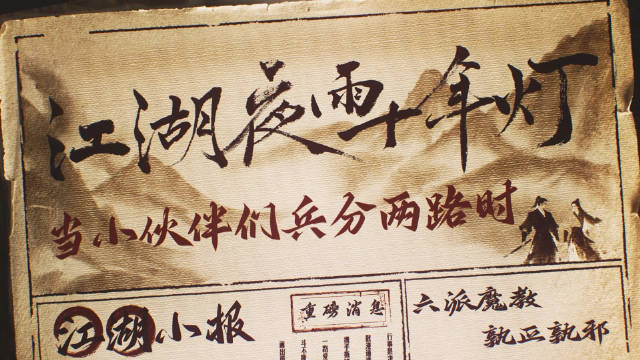 江湖夜雨十年灯
当小伙伴们兵分两路时
江湖小报
重磅消息
六派魔教
孰正孰邪